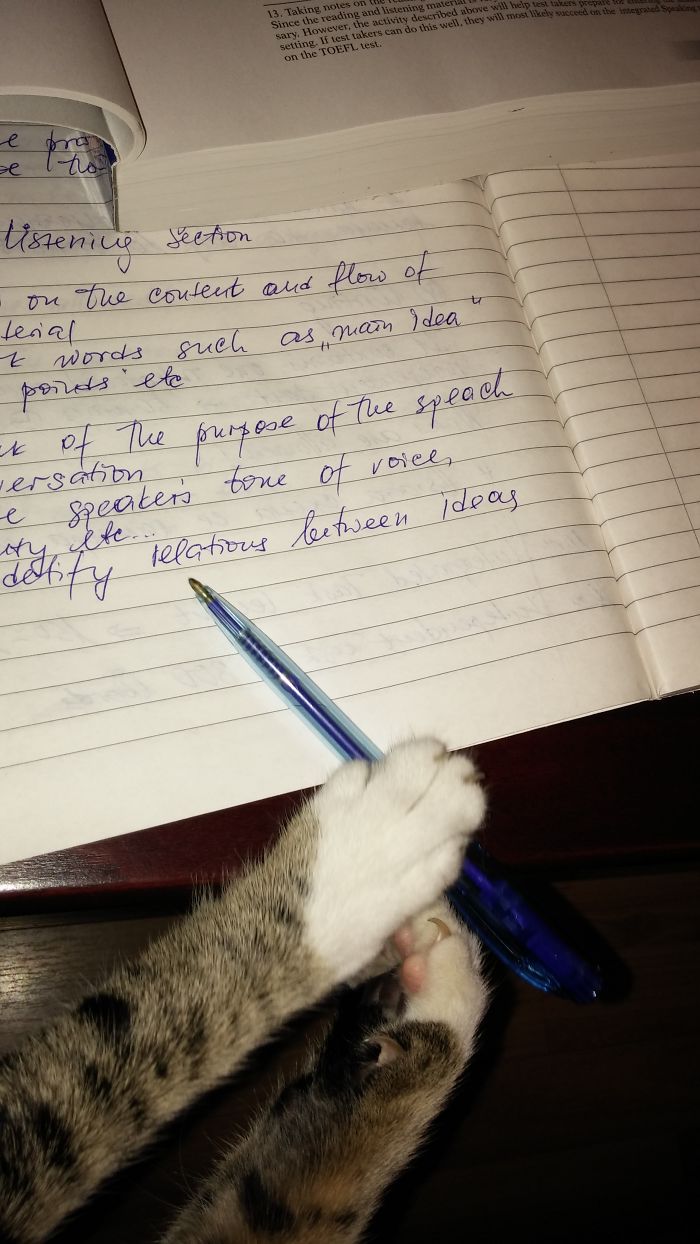 13. Taking notes on the
Since the reading and listening material is
sary. However, the activity described above will help test takers prepare for
setting. If test takers can do this well, they will most likely succeed on the integrated Speaking
on the TOEFL test.
e pro
Listening section
on the content and flow of
terial
t words such as „main idea"
points" etc
of the purpose of the speach
versation
e speaker's tone of voice,
ty etc...
identify relations between ideas